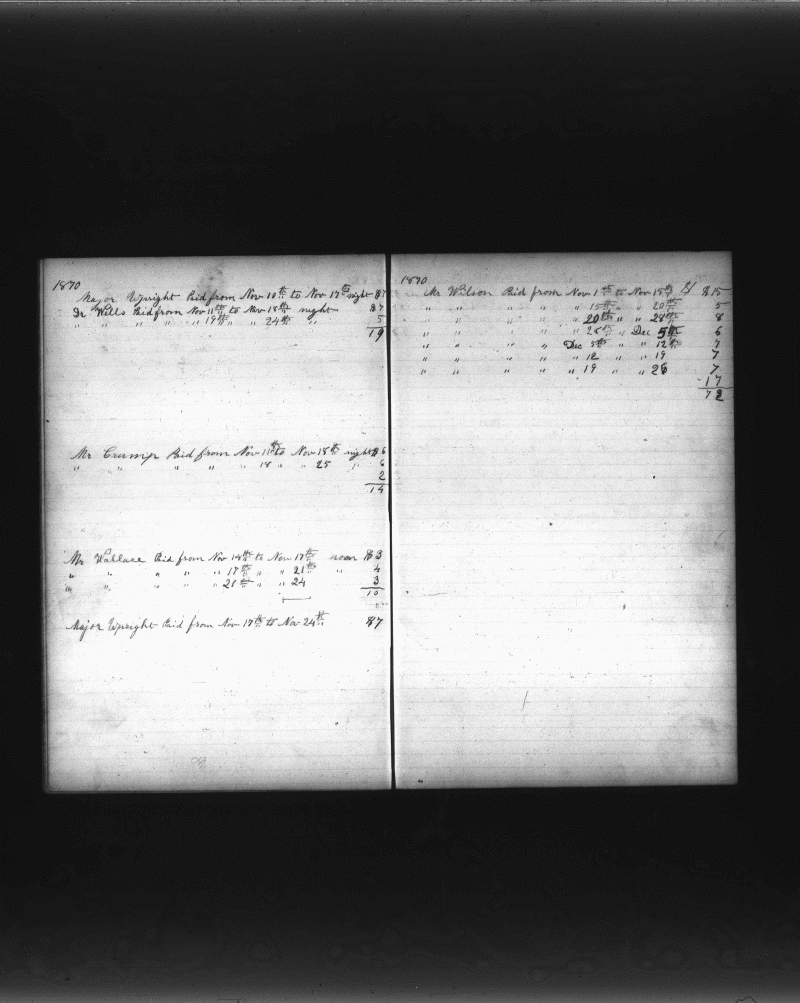 1870
Major Wright Paid from Nov 10th to Nov 17th night $7
Dr Wills Paid from Nov 11th to Nov 18th night $7
" " " " " 19th " " 24th " 5
19
Mr Crump Paid from Nov 11th to Nov 18th night $6
" " " " " 18 " " 25 " 6
2
14
Mr Wallace Paid from Nov 14th to Nov 17th noon $3
" " " " " 17th " " 21th " 4
" " " " " 21th " " 24 3
10
Major Wright Paid from Nov 17th to Nov 24th $7
1870
Mr Wilson Paid from Nov 1th to Nov 15th $15
" " " " " 15th " " 20th 5
" " " " " 20th " " 28th 8
" " " " " 28th " Dec 5th 6
" " " " Dec 5th " " 12th 7
" " " " " 12 " " 19 7
" " " " " 19 " " 26 7
17
72